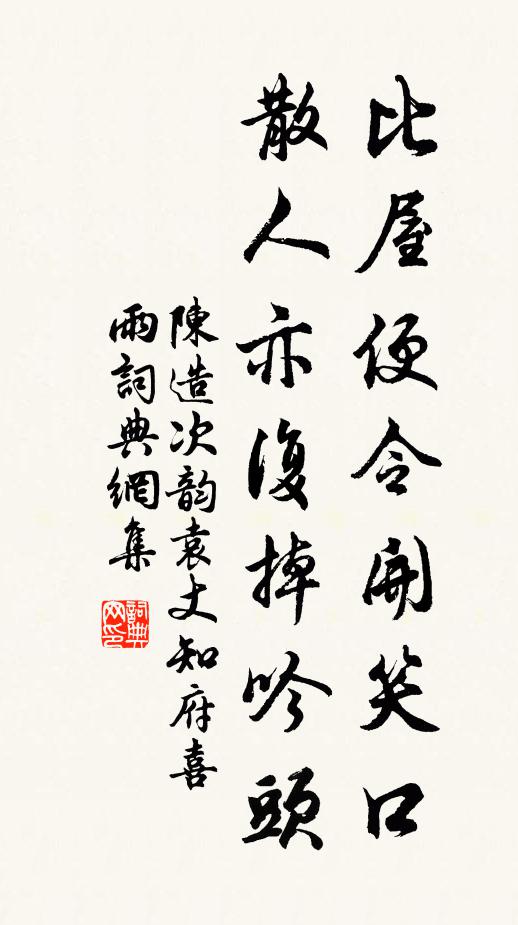 比屋便令開笑口
散人亦復掉吟頭
陳造次韵袁丈知府喜
雨詞典網集
詞典
网印